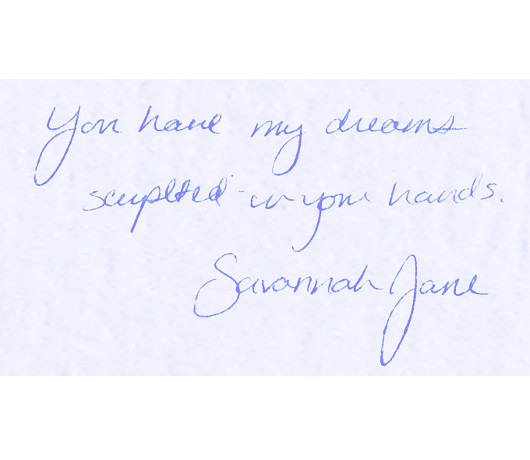 You have my dreams
sculpted in your hands.
Savannah Jane